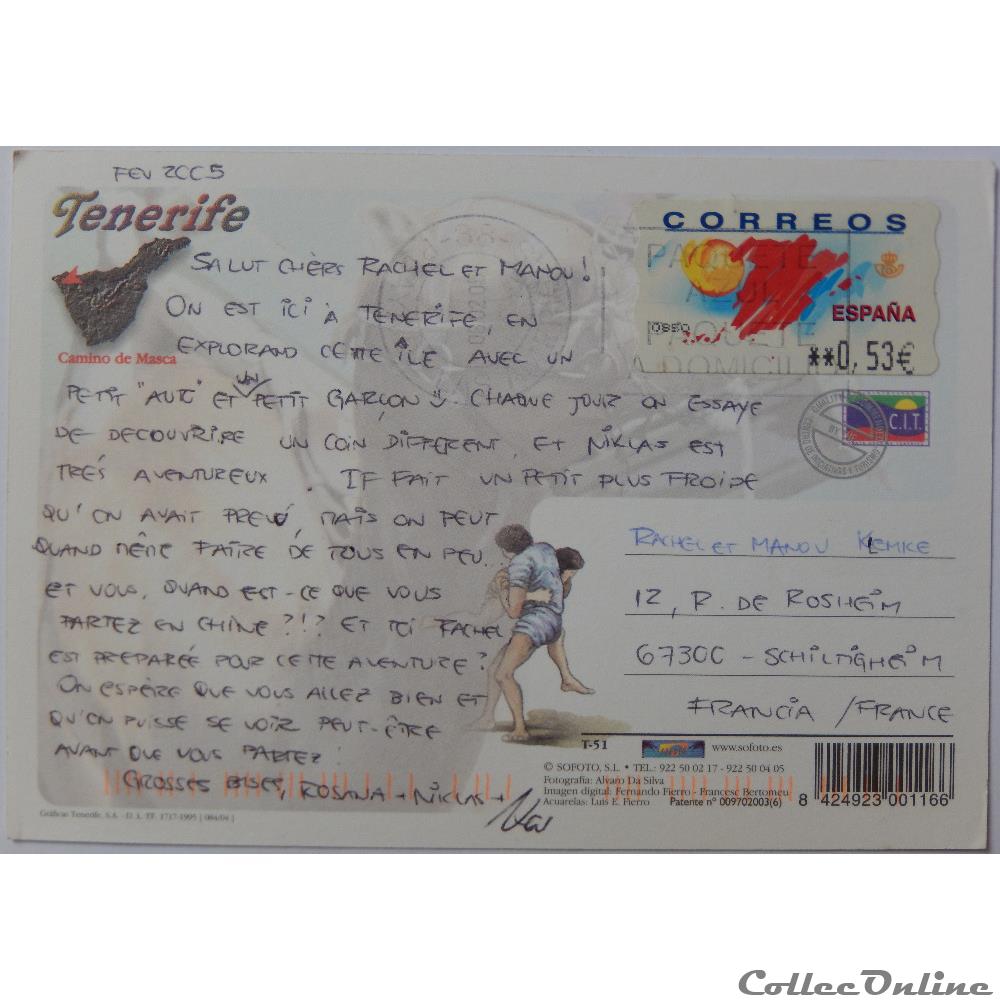 FEV 2005
Tenerife
Camino de Masca
SALUT CHÈRS RACHEL ET MANOU!
ON EST ICI À TENERIFE, EN
EXPLORAND CETTE ÎLE AVEC UN
PETIT "AUTO" ET UN PETIT GARÇON. CHAQUE JOUR ON ESSAYE
DE DECOUVRIRE UN COIN DIFFERENT, ET NIKLAS EST
TRÉS AVENTUREUX. IF FAIT UN PETIT PLUS FROIDE
QU'ON AVAIT PREVÚ, MAIS ON PEUT
QUAND MÊME FAIRE DE TOUS EN PEU.
ET VOUS, QUAND EST-CE QUE VOUS
PARTEZ EN CHINE?!? ET TOI RACHEL
EST PREPARÉE POUR CETTE AVENTURE?
ON ESPÈRE QUE VOUS ALLEZ BIEN ET
QU'ON PUISSE SE VOIR PEUT-ÊTRE
AVANT QUE VOUS PARTEZ!
GROSSES BISES, ROSANA + NIKLAS +
CORREOS
ESPAÑA
**0,53€
PAQUETE
AZUL
PAQUETE
A DOMICIL
QUALITY
C.I.T.
CENTRO DE INICIATIVAS Y TURISMO
RACHEL ET MANOU KLEMKE
12, R. DE ROSHEIM
67300 - SCHILTIGHEIM
FRANCIA / FRANCE
T-51
www.sofoto.es
© SOFOTO, S.L. • TEL.: 922 50 02 17 - 922 50 04 05
Fotografía: Alvaro Da Silva
Imagen digital: Fernando Fierro - Francesc Bertomeu
Acuarelas: Luis E. Fierro Patente nº 009702003(6)
8 424923 001166
Gráficas Tenerife, S.A. - D. L. TF. 1717-1995 [084/04]
CollecOnline